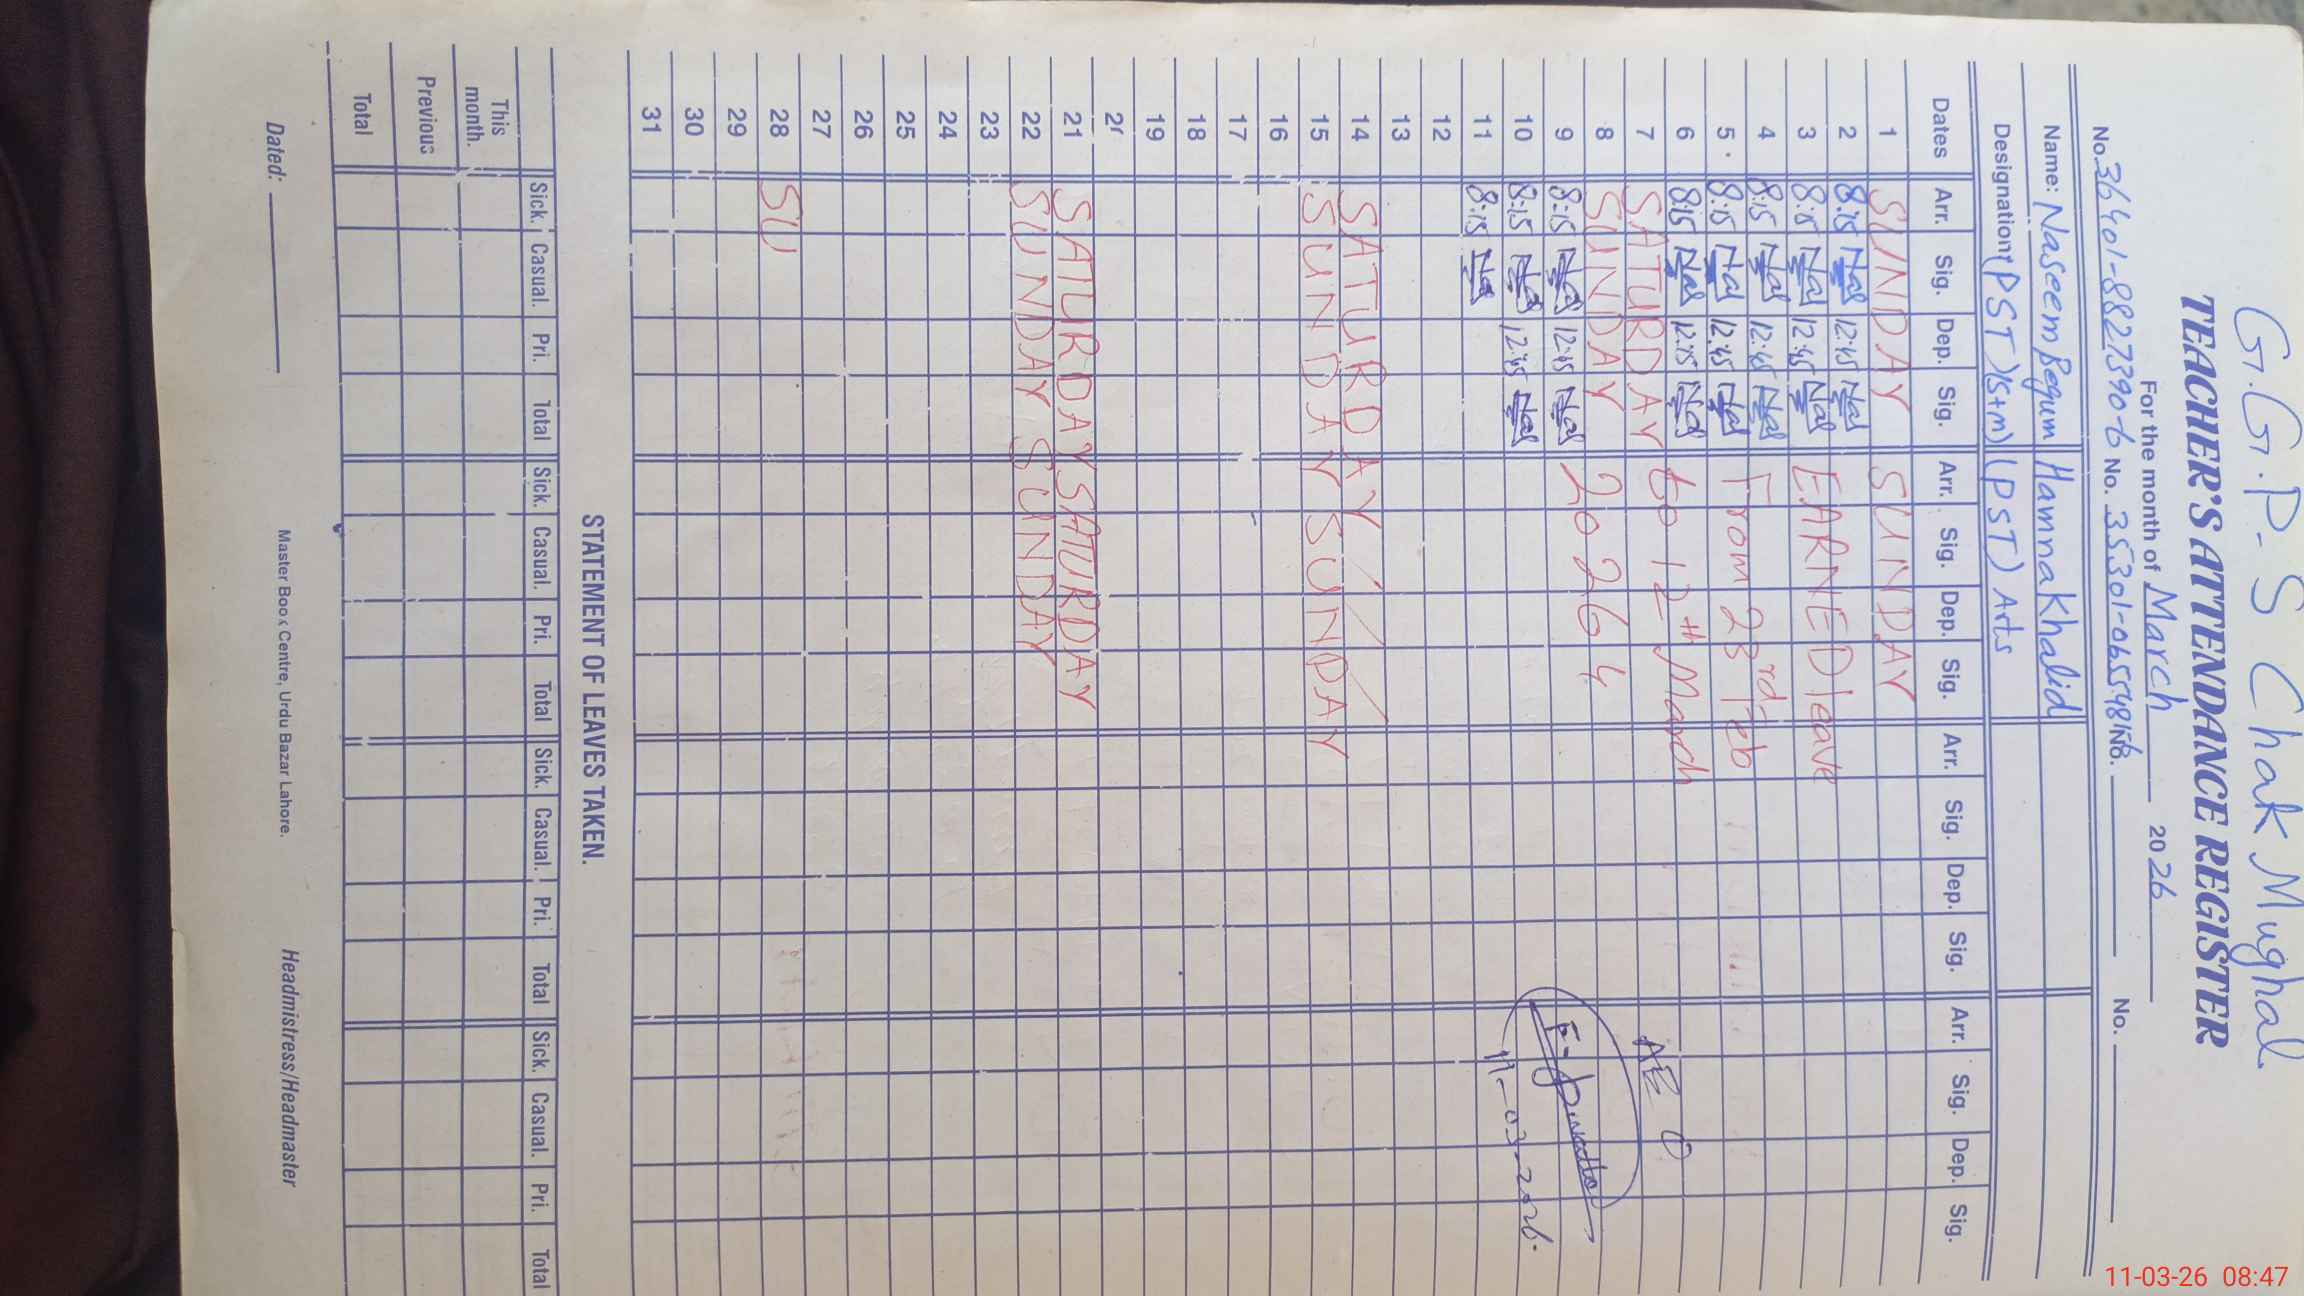 G.G.P.S Chak Mughal
TEACHER'S ATTENDANCE REGISTER
For the month of March 2026
No. 36401-8827390-6 No. No. No.
Name: Naseem Begum Hamna Khalid
Designation (PST)(S+m) (PST) Arts
Dates Arr. Sig. Dep. Sig. Arr. Sig. Dep. Sig. Arr. Sig. Dep. Sig. Arr. Sig. Dep. Sig.
1 SUNDAY SUNDAY
2 8:15 12:45
3 8:15 12:45 EARNED leave
4 8:15 12:45
5 8:15 12:45 From 23rd Feb
6 8:15 12:15 to 12th March
7 SATURDAY AEO
8 SUNDAY 2026
9 8:15 12:45
10 8:15 12:45 11-03-2026
11 8:15
12
13
14 SATURDAY
15 SUNDAY SUNDAY
16
17
18
19
2
21 SATURDAY SATURDAY
22 SUNDAY SUNDAY
23
24
25
26
27
28 SU
29
30
31
STATEMENT OF LEAVES TAKEN.
Sick. Casual. Pri. Total Sick. Casual. Pri. Total Sick. Casual. Pri. Total Sick. Casual. Pri. Total
This month.
Previous
Total
Dated: Master Book Centre, Urdu Bazar Lahore. Headmistress/Headmaster
11-03-26 08:47